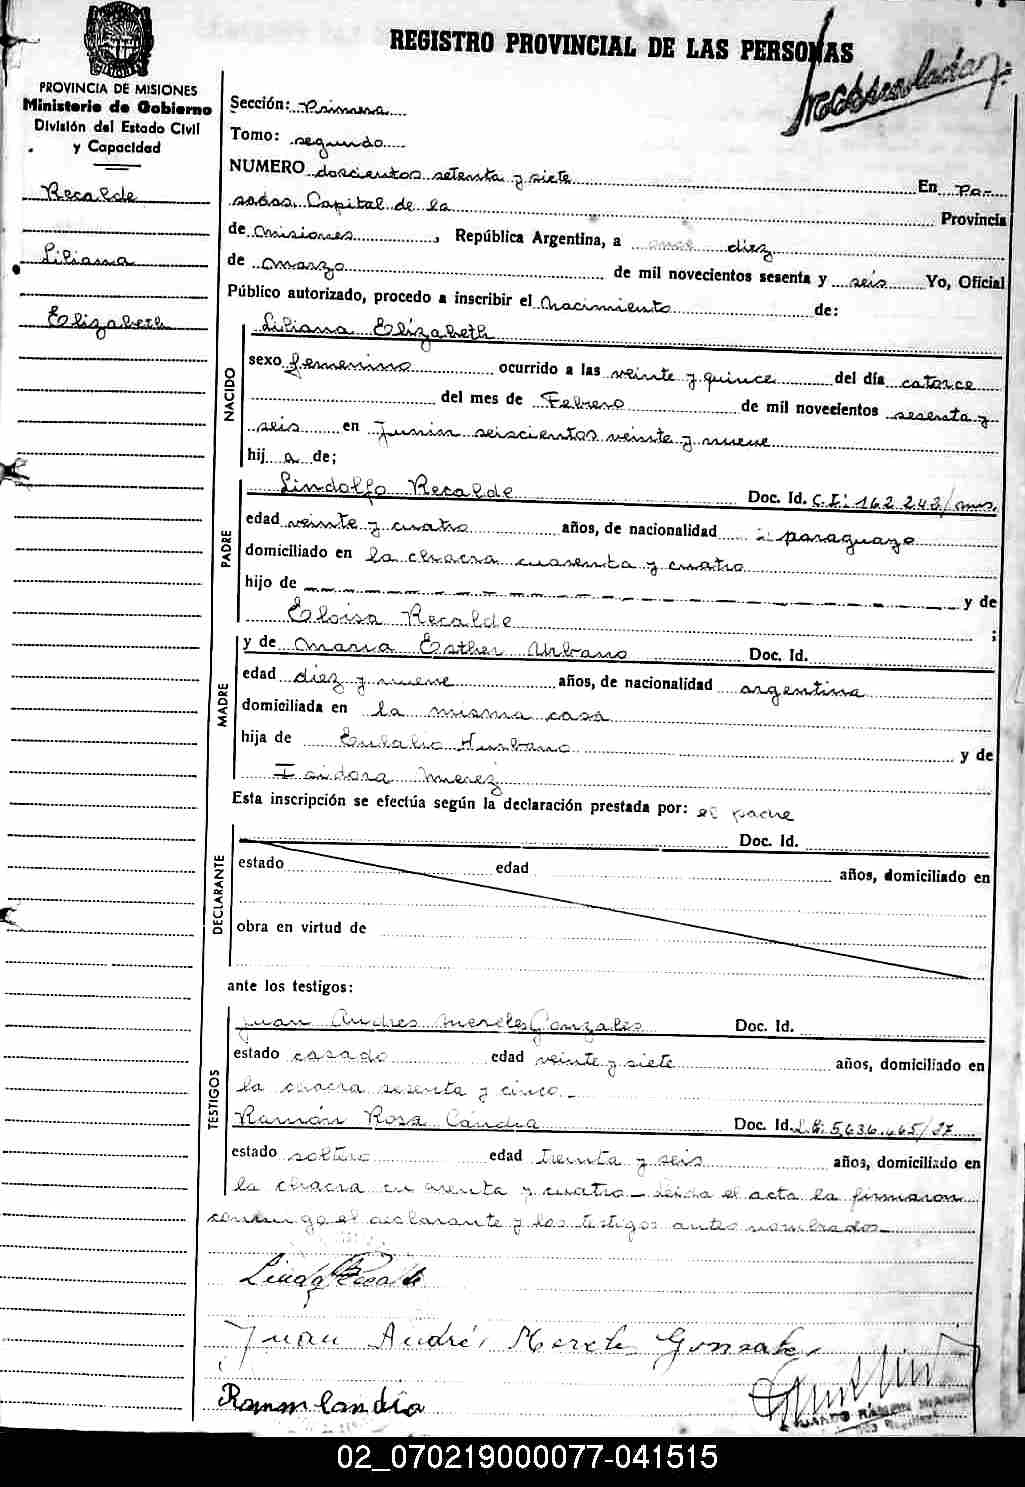 REGISTRO PROVINCIAL DE LAS PERSONAS
PROVINCIA DE MISIONES
Ministerio de Gobierno
División del Estado Civil
y Capacidad
Recalde
Liliana
Elizabeth
Sección: Primera
Tomo: segundo
NUMERO doscientos setenta y siete En Po-
sadas Capital de la Provincia
de Misiones, República Argentina, a diez
de marzo de mil novecientos sesenta y seis Yo, Oficial
Público autorizado, procedo a inscribir el Nacimiento de:
NACIDO
Liliana Elizabeth
sexo femenino ocurrido a las veinte y quince del día catorce
del mes de Febrero de mil novecientos sesenta y
seis en Junin seiscientos veinte y nueve
hij a de;
PADRE
Lindolfo Recalde Doc. Id. C.I: 162.243/
edad veinte y cuatro años, de nacionalidad paraguayo
domiciliado en la chacra cuarenta y cuatro
hijo de y de
Eloisa Recalde ;
MADRE
y de Maria Esther Urbano Doc. Id.
edad diez y nueve años, de nacionalidad argentina
domiciliada en la misma casa
hija de Eulalio Urbano y de
Isidora Merez
Esta inscripción se efectúa según la declaración prestada por: el padre
DECLARANTE
Doc. Id.
estado edad años, domiciliado en
obra en virtud de
ante los testigos:
TESTIGOS
Juan Andres Mereles Gonzales Doc. Id.
estado casado edad veinte y siete años, domiciliado en
la chacra sesenta y cinco
Ramón Rosa Candia Doc. Id. 5.636.465/
estado soltero edad treinta y seis años, domiciliado en
la chacra cuarenta y cuatro leida el acta la firmaron
conmigo el declarante y los testigos antes nombrados
Juan Andrés Mereles Gonzales
Ramon Candia
RAMON
02_070219000077-041515